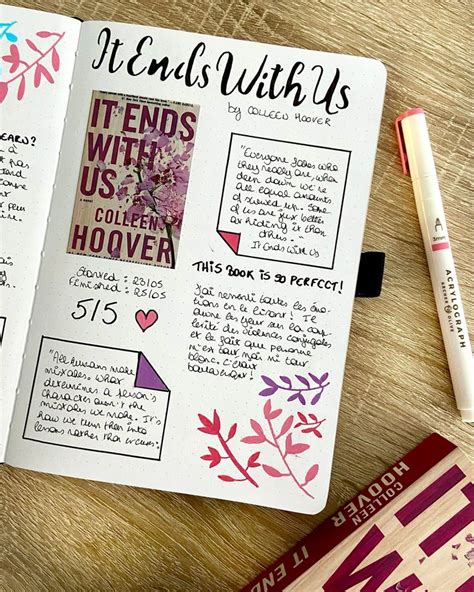 EARN?
It Ends With Us
by COLLEEN HOOVER
IT ENDS
WITH
US
A NOVEL
COLLEEN
HOOVER
Started : 23/05
Finished : 25/05
5/5
"All humans make
mistakes. What
determines a person's
character aren't the
mistakes we make. It's
how we turn them into
lessons rather than excuses."
"Everyone fakes who
they really are, when
deep down we're
all equal amounts
of screwed up. Some
of us are just better
at hiding it than
others."
It Ends With Us
THIS BOOK IS SO PERFECT!
J'ai ressenti toutes les émo-
tions en le lisant! Il
ouvre les yeux sur la
des violences conjugales
et le fait que personne
n'est tout noir ni tout
blanc. C'était
A
ACRYLOGRAPH
ARCHER & OLIVE
COLLEEN
HOOVER
IT END